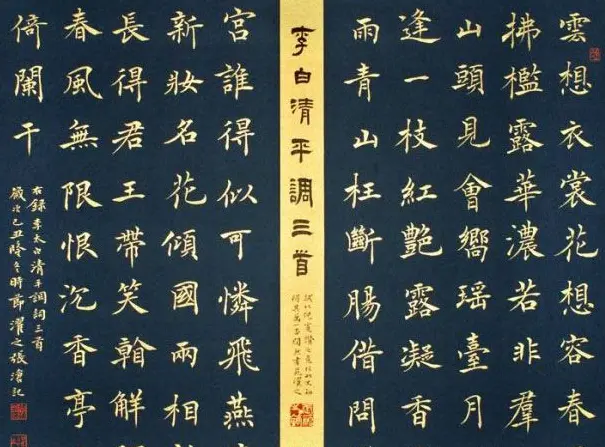 雲想衣裳花想容春
拂檻露華濃若非羣
山頭見會嚮瑤臺月
逢一枝紅艷露凝香
雨青山枉斷腸借問
李白清平調三首
宮誰得似可憐飛燕
新妝名花傾國兩相
長得君王帶笑看解
春風無限恨沉香亭
倚闌干
右錄李太白清平調詞三首
歲次己丑隆冬時節